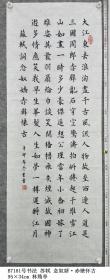 大江東去浪淘盡千古風流人物故壘西邊人道是
三國周郎赤壁亂石穿空驚濤拍岸捲起千堆雪江
山如畫一時多少豪傑遙想公瑾當年小喬初嫁了
雄姿英發羽扇綸巾談笑間檣櫓灰飛煙滅故國神
遊多情應笑我早生華髮人生如夢一樽還酹江月
蘇軾詞念奴嬌赤壁懷古
B7181号书法 苏轼 念奴娇·赤壁怀古
95×34cm 林